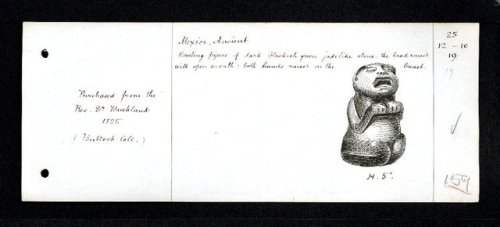 Mexico, Ancient
Kneeling figure of dark blackish green jade like stone the head raised
with open mouth: both hands raised in the breast.
Purchased from the
Rev. Dr Buckland
1825
(Bullock Coll.)
H. 5".
25
12 - 10
19
19